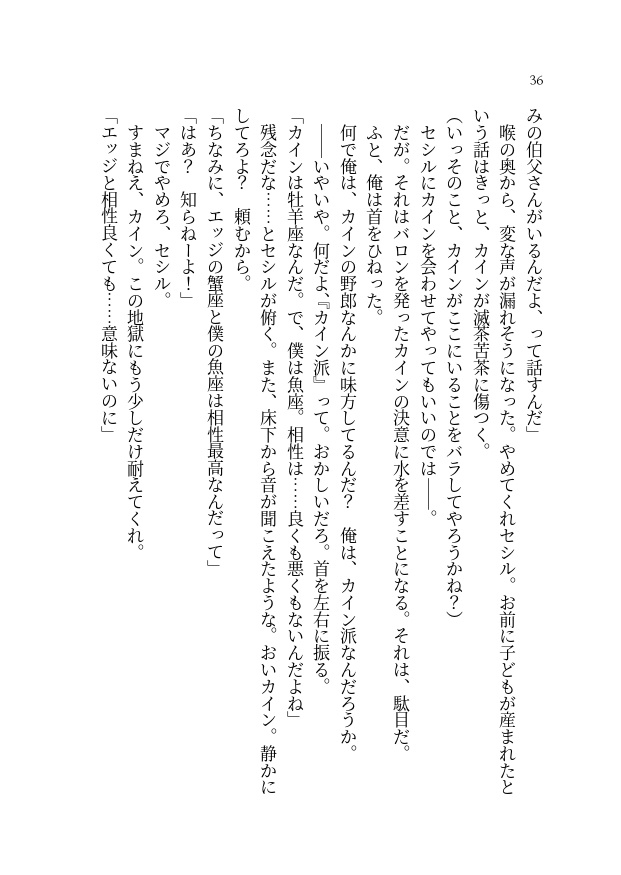 36
みの伯父さんがいるんだよ、って話すんだ」
　喉の奥から、変な声が漏れそうになった。やめてくれセシル。お前に子どもが産まれたと
いう話はきっと、カインが滅茶苦茶に傷つく。
（いっそのこと、カインがここにいることをバラしてやろうかね？）
　セシルにカインを会わせてやってもいいのでは――。
　だが。それはバロンを発ったカインの決意に水を差すことになる。それは、駄目だ。
　ふと、俺は首をひねった。
　何で俺は、カインの野郎なんかに味方してるんだ？　俺は、カイン派なんだろうか。
　――いやいや。何だよ、『カイン派』って。おかしいだろ。首を左右に振る。
「カインは牡羊座なんだ。で、僕は魚座。相性は……良くも悪くもないんだよね」
　残念だな……とセシルが俯く。また、床下から音が聞こえたような。おいカイン。静かに
してろよ？　頼むから。
「ちなみに、エッジの蟹座と僕の魚座は相性最高なんだって」
「はあ？　知らねーよ！」
　マジでやめろ、セシル。
　すまねえ、カイン。この地獄にもう少しだけ耐えてくれ。
「エッジと相性良くても……意味ないのに」